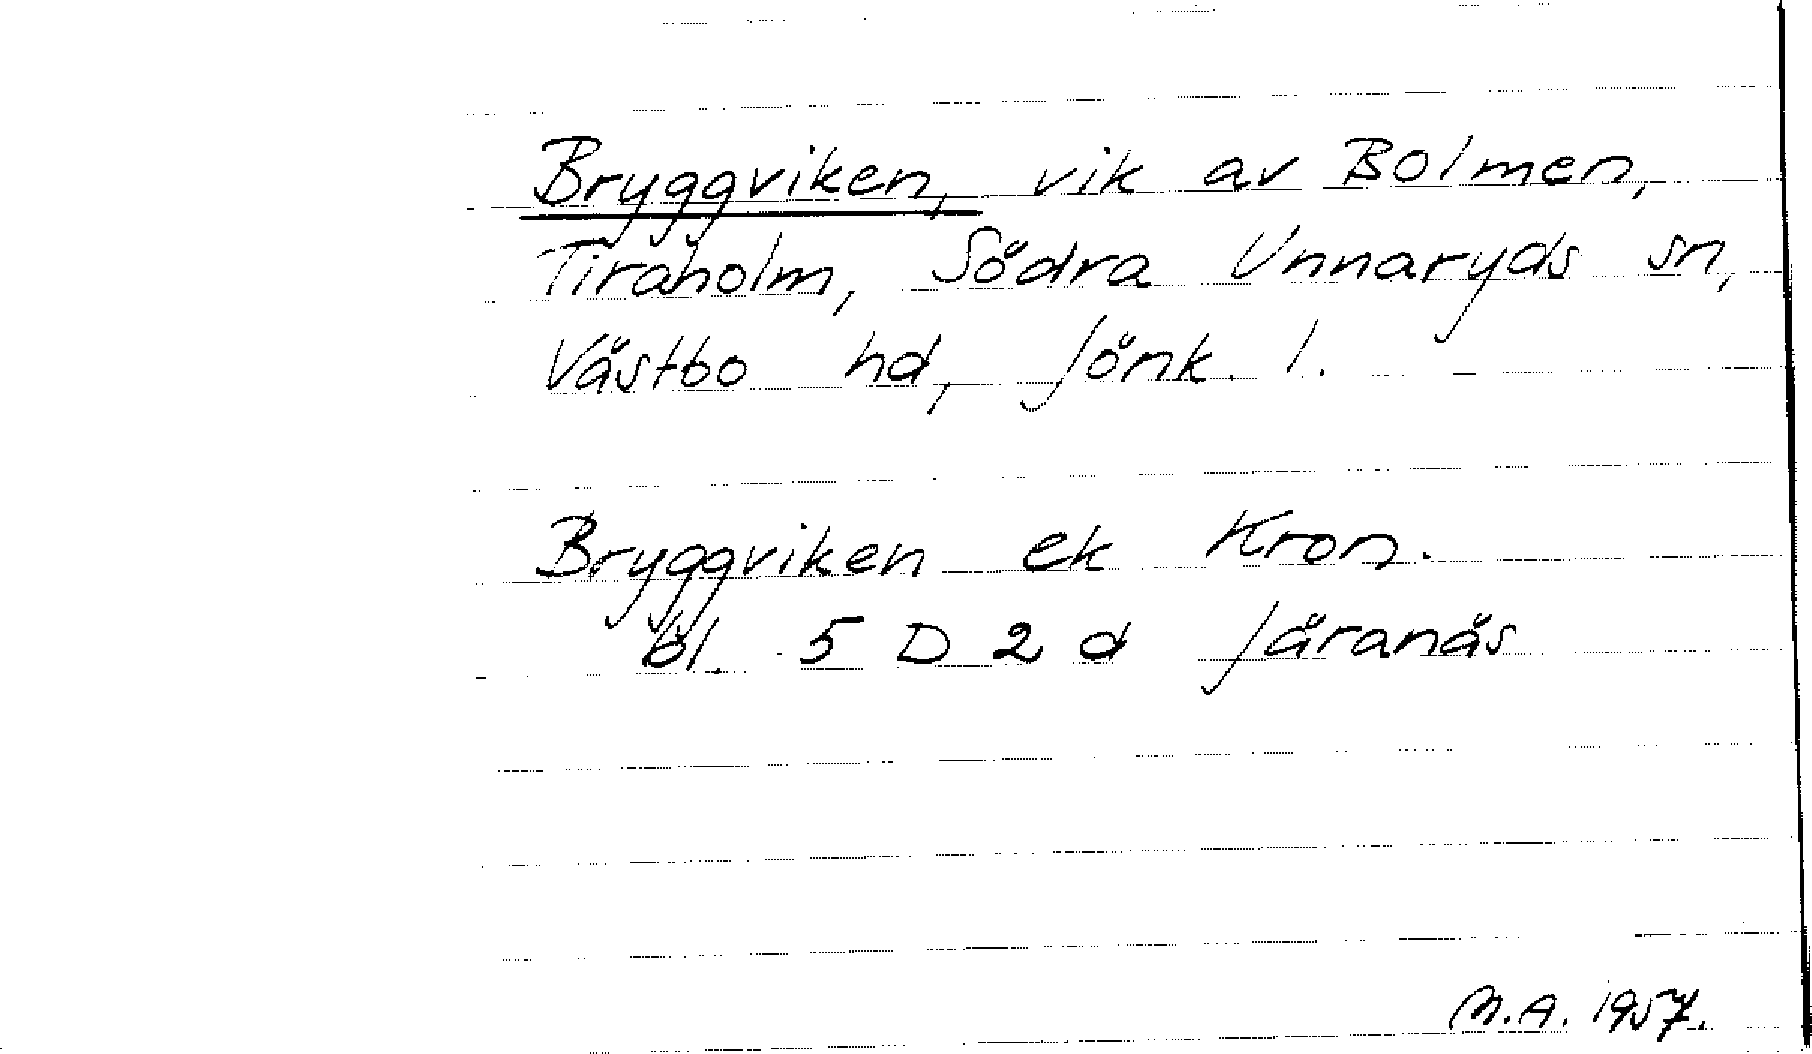 Bryggviken, vik av Bolmen,
Tiraholm, Södra Unnaryds sn,
Västbo hd, Jönk. l.
Bryggviken ek Kron.
bl. 5 D 2 d Järanäs
M.A. 1957.